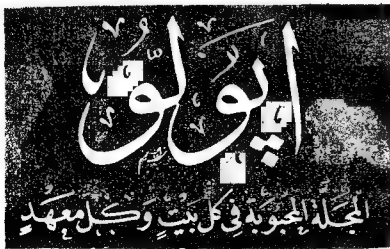 اپولّو
المجلّة المحبوبة في كل بيتٍ وكل معهدٍ